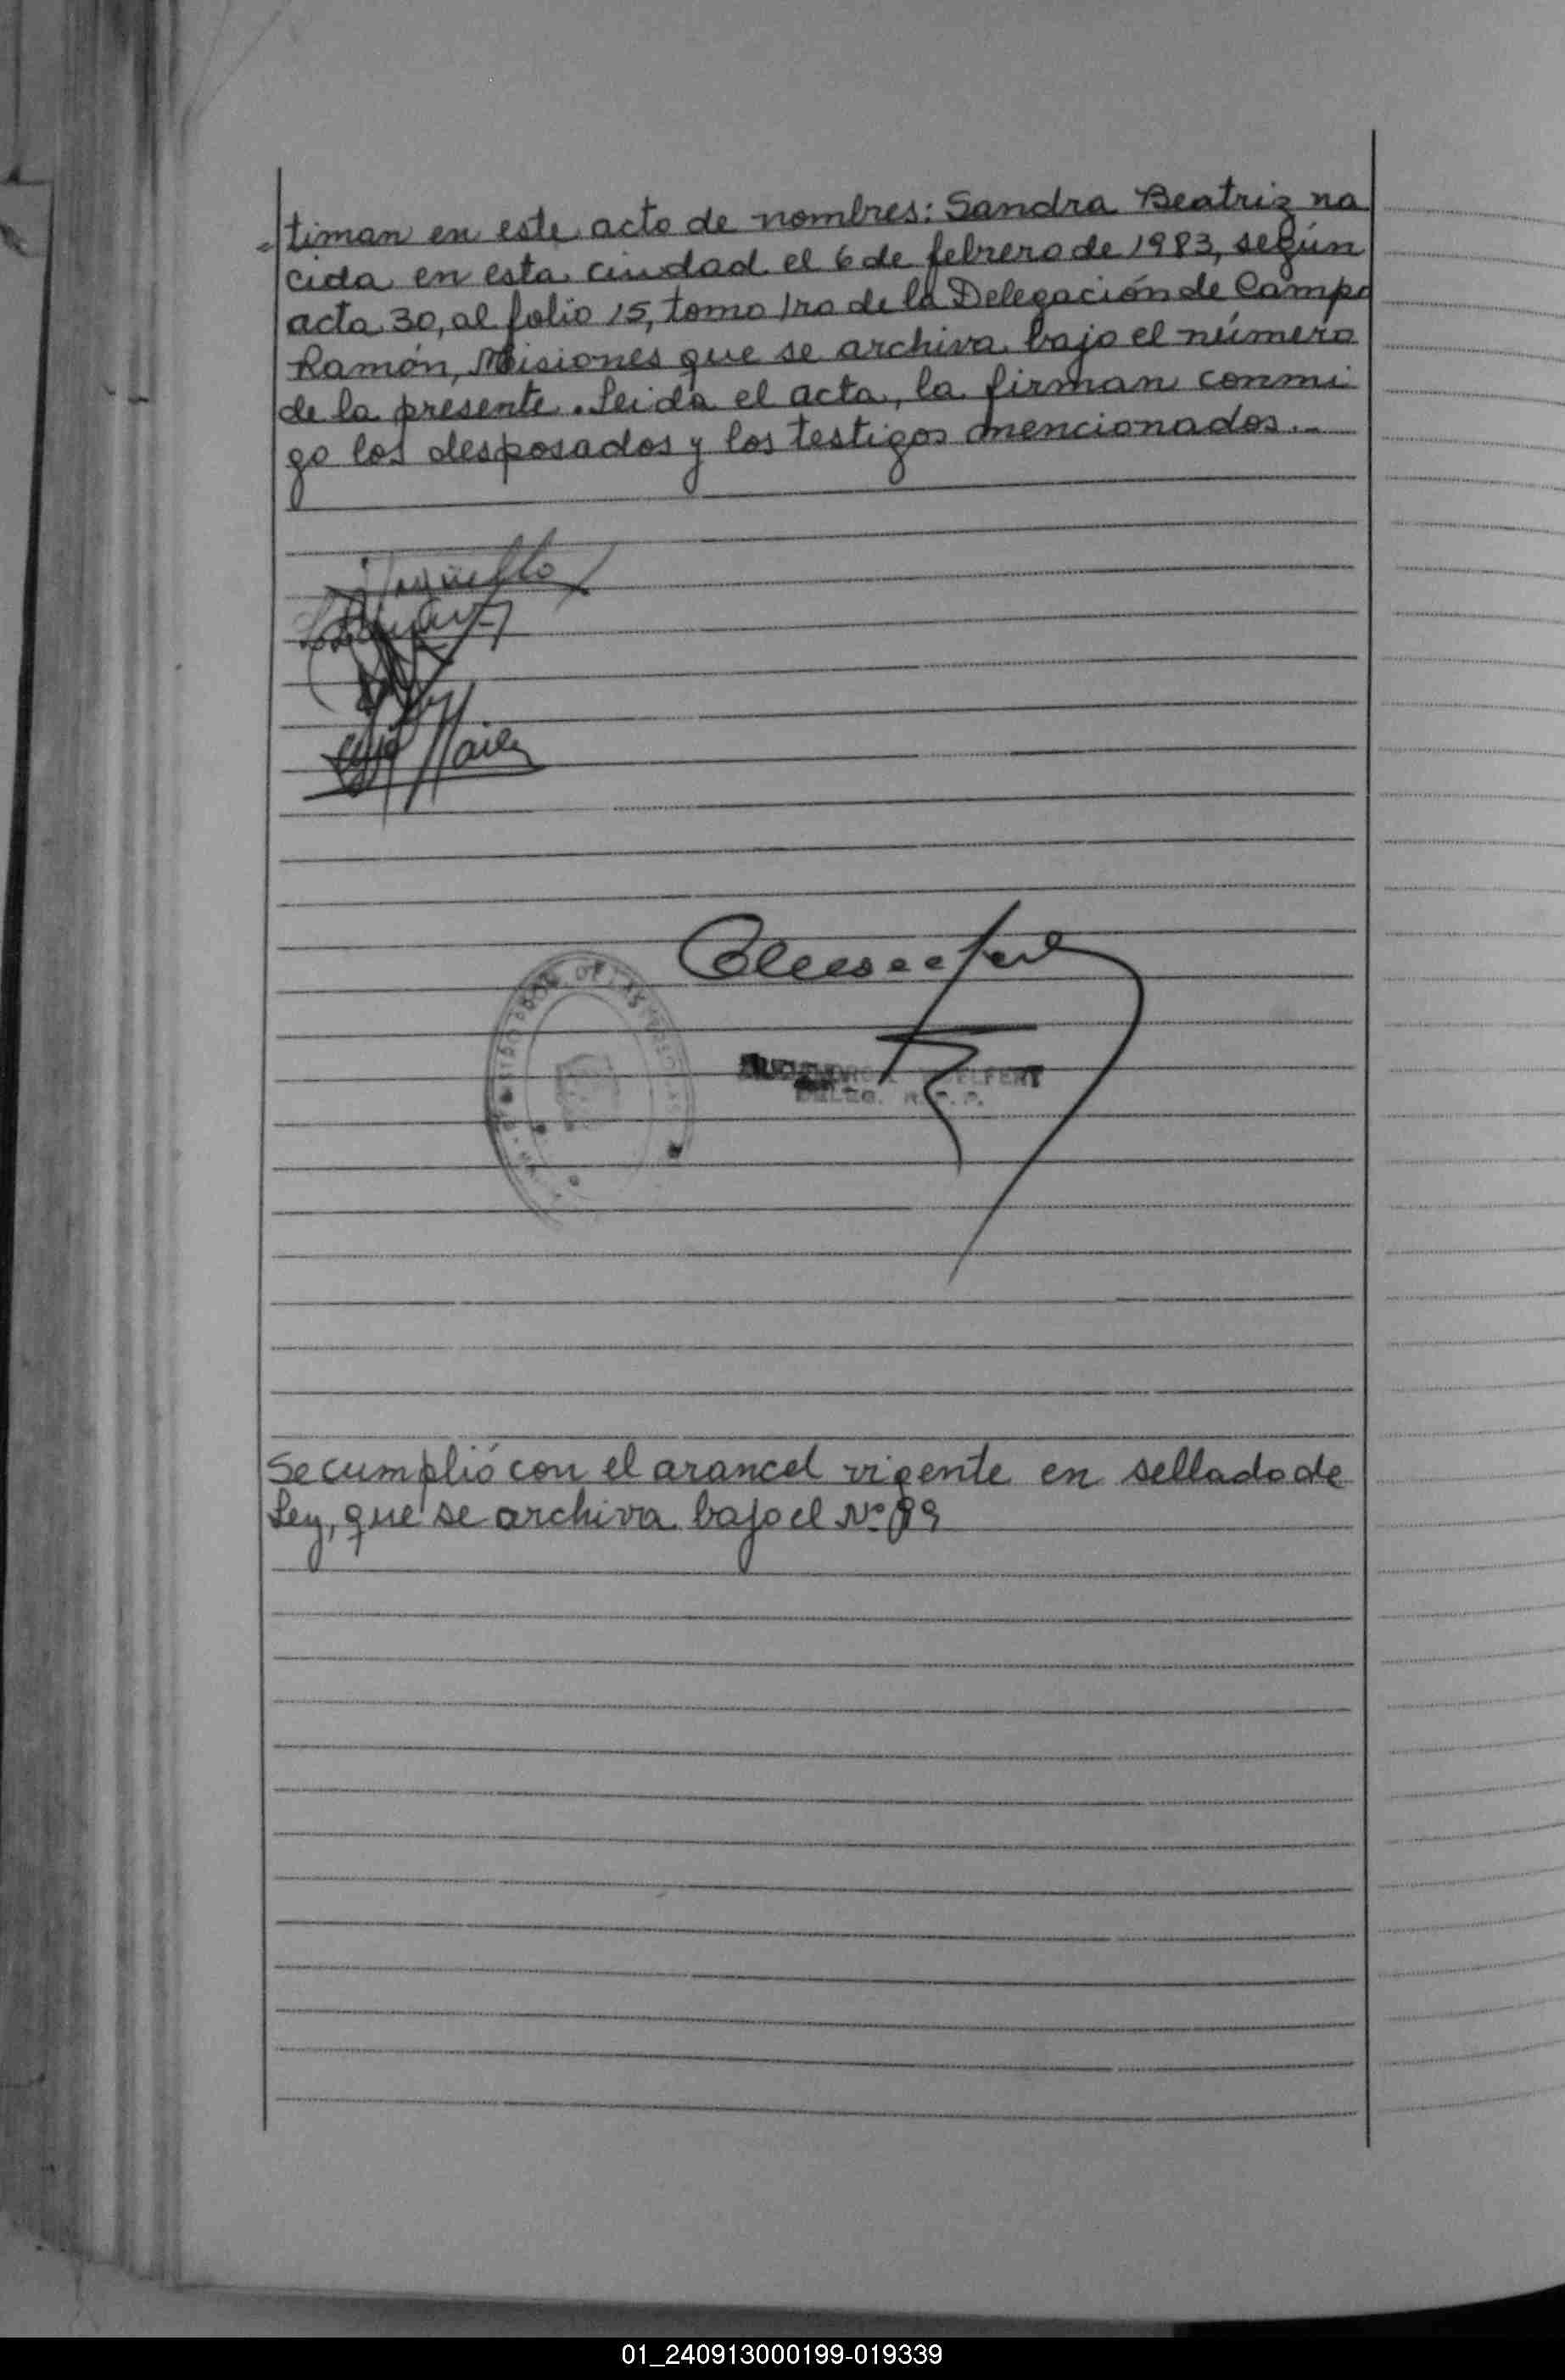 timan en este acto de nombres: Sandra Beatriz na
cida en esta ciudad el 6 de febrero de 1983, según
acta 30, al folio 15, tomo 1ro de la Delegación de Campo
Ramón, Misiones que se archiva bajo el número
de la presente. Leida el acta, la firman conmi
go los desposados y los testigos mencionados.-
DELEG. R. P.
Se cumplió con el arancel vigente en sellado de
Ley, que se archiva bajo el Nº 99
01_240913000199-019339